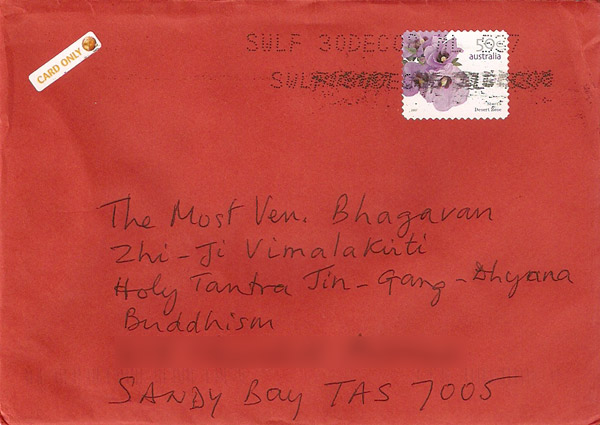 CARD ONLY
SWLF 30DEC
50c
australia
SWLF
Desert Rose
The Most Ven. Bhagavan
Zhi-Ji Vimalakirti
Holy Tantra Jin-Gang-Dhyana
Buddhism
SANDY Bay TAS 7005